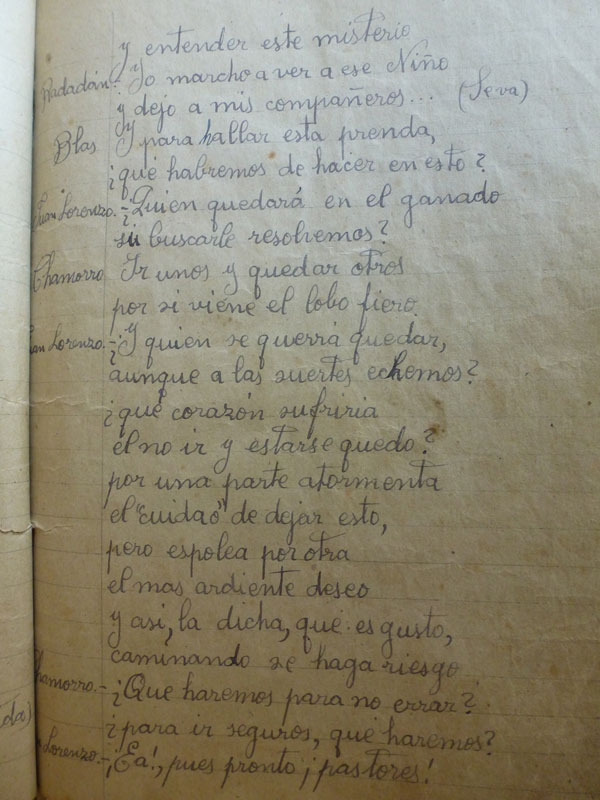 y entender este misterio
Radadán:- Yo marcho a ver a ese Niño
y dejo a mis compañeros... (Se va)
Blas Y para hallar esta prenda,
¿qué habremos de hacer en esto?
Juan Lorenzo.- ¿Quien quedará en el ganado
si buscarle resolvemos?
Chamorro Ir unos y quedar otros
por si viene el lobo fiero.
Juan Lorenzo.- ¿Y quien se querrá quedar,
aunque a las suertes echemos?
¿qué corazón sufriria
el no ir y estarse quedo?
por una parte atormenta
el "cuidao" de dejar esto,
pero espolea por otra
el mas ardiente deseo
y asi, la dicha, que es gusto,
caminando se haga riesgo
Chamorro.- ¿Que haremos para no errar?
¿para ir seguros, qué haremos?
Lorenzo.- ¡Ea!, pues pronto ¡pastores!